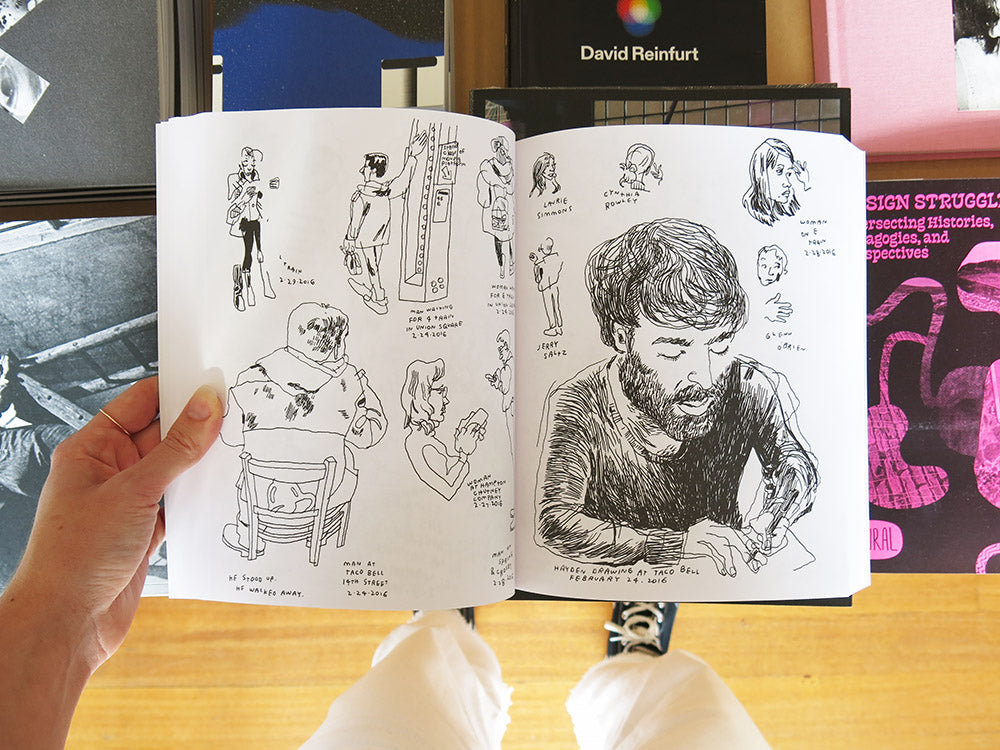 David Reinfurt
SIGN STRUGGL
ersecting Histories,
agogies, and
spectives
RAL
L TRAIN
2-29-2016
MAN WAITING
FOR 4 TRAIN
IN UNION SQUARE
2-24-2016
WOMAN
FOR 6 TRAI
IN UNION
WOMAN
AT HAMPTON
CHUTNEY
COMPANY
2-27-2016
HE STOOD UP.
HE WALKED AWAY.
MAN AT
TACO BELL
14TH STREET
2-24-2016
MAN
SPRING
2-28-2016
LAURIE
SIMMONS
CYNTHIA
ROWLEY
WOMAN
ON E
TRAIN
2-28-2016
JERRY
SALTZ
GLENN
O'BRIEN
HAYDEN DRAWING AT TACO BELL
FEBRUARY 24. 2016